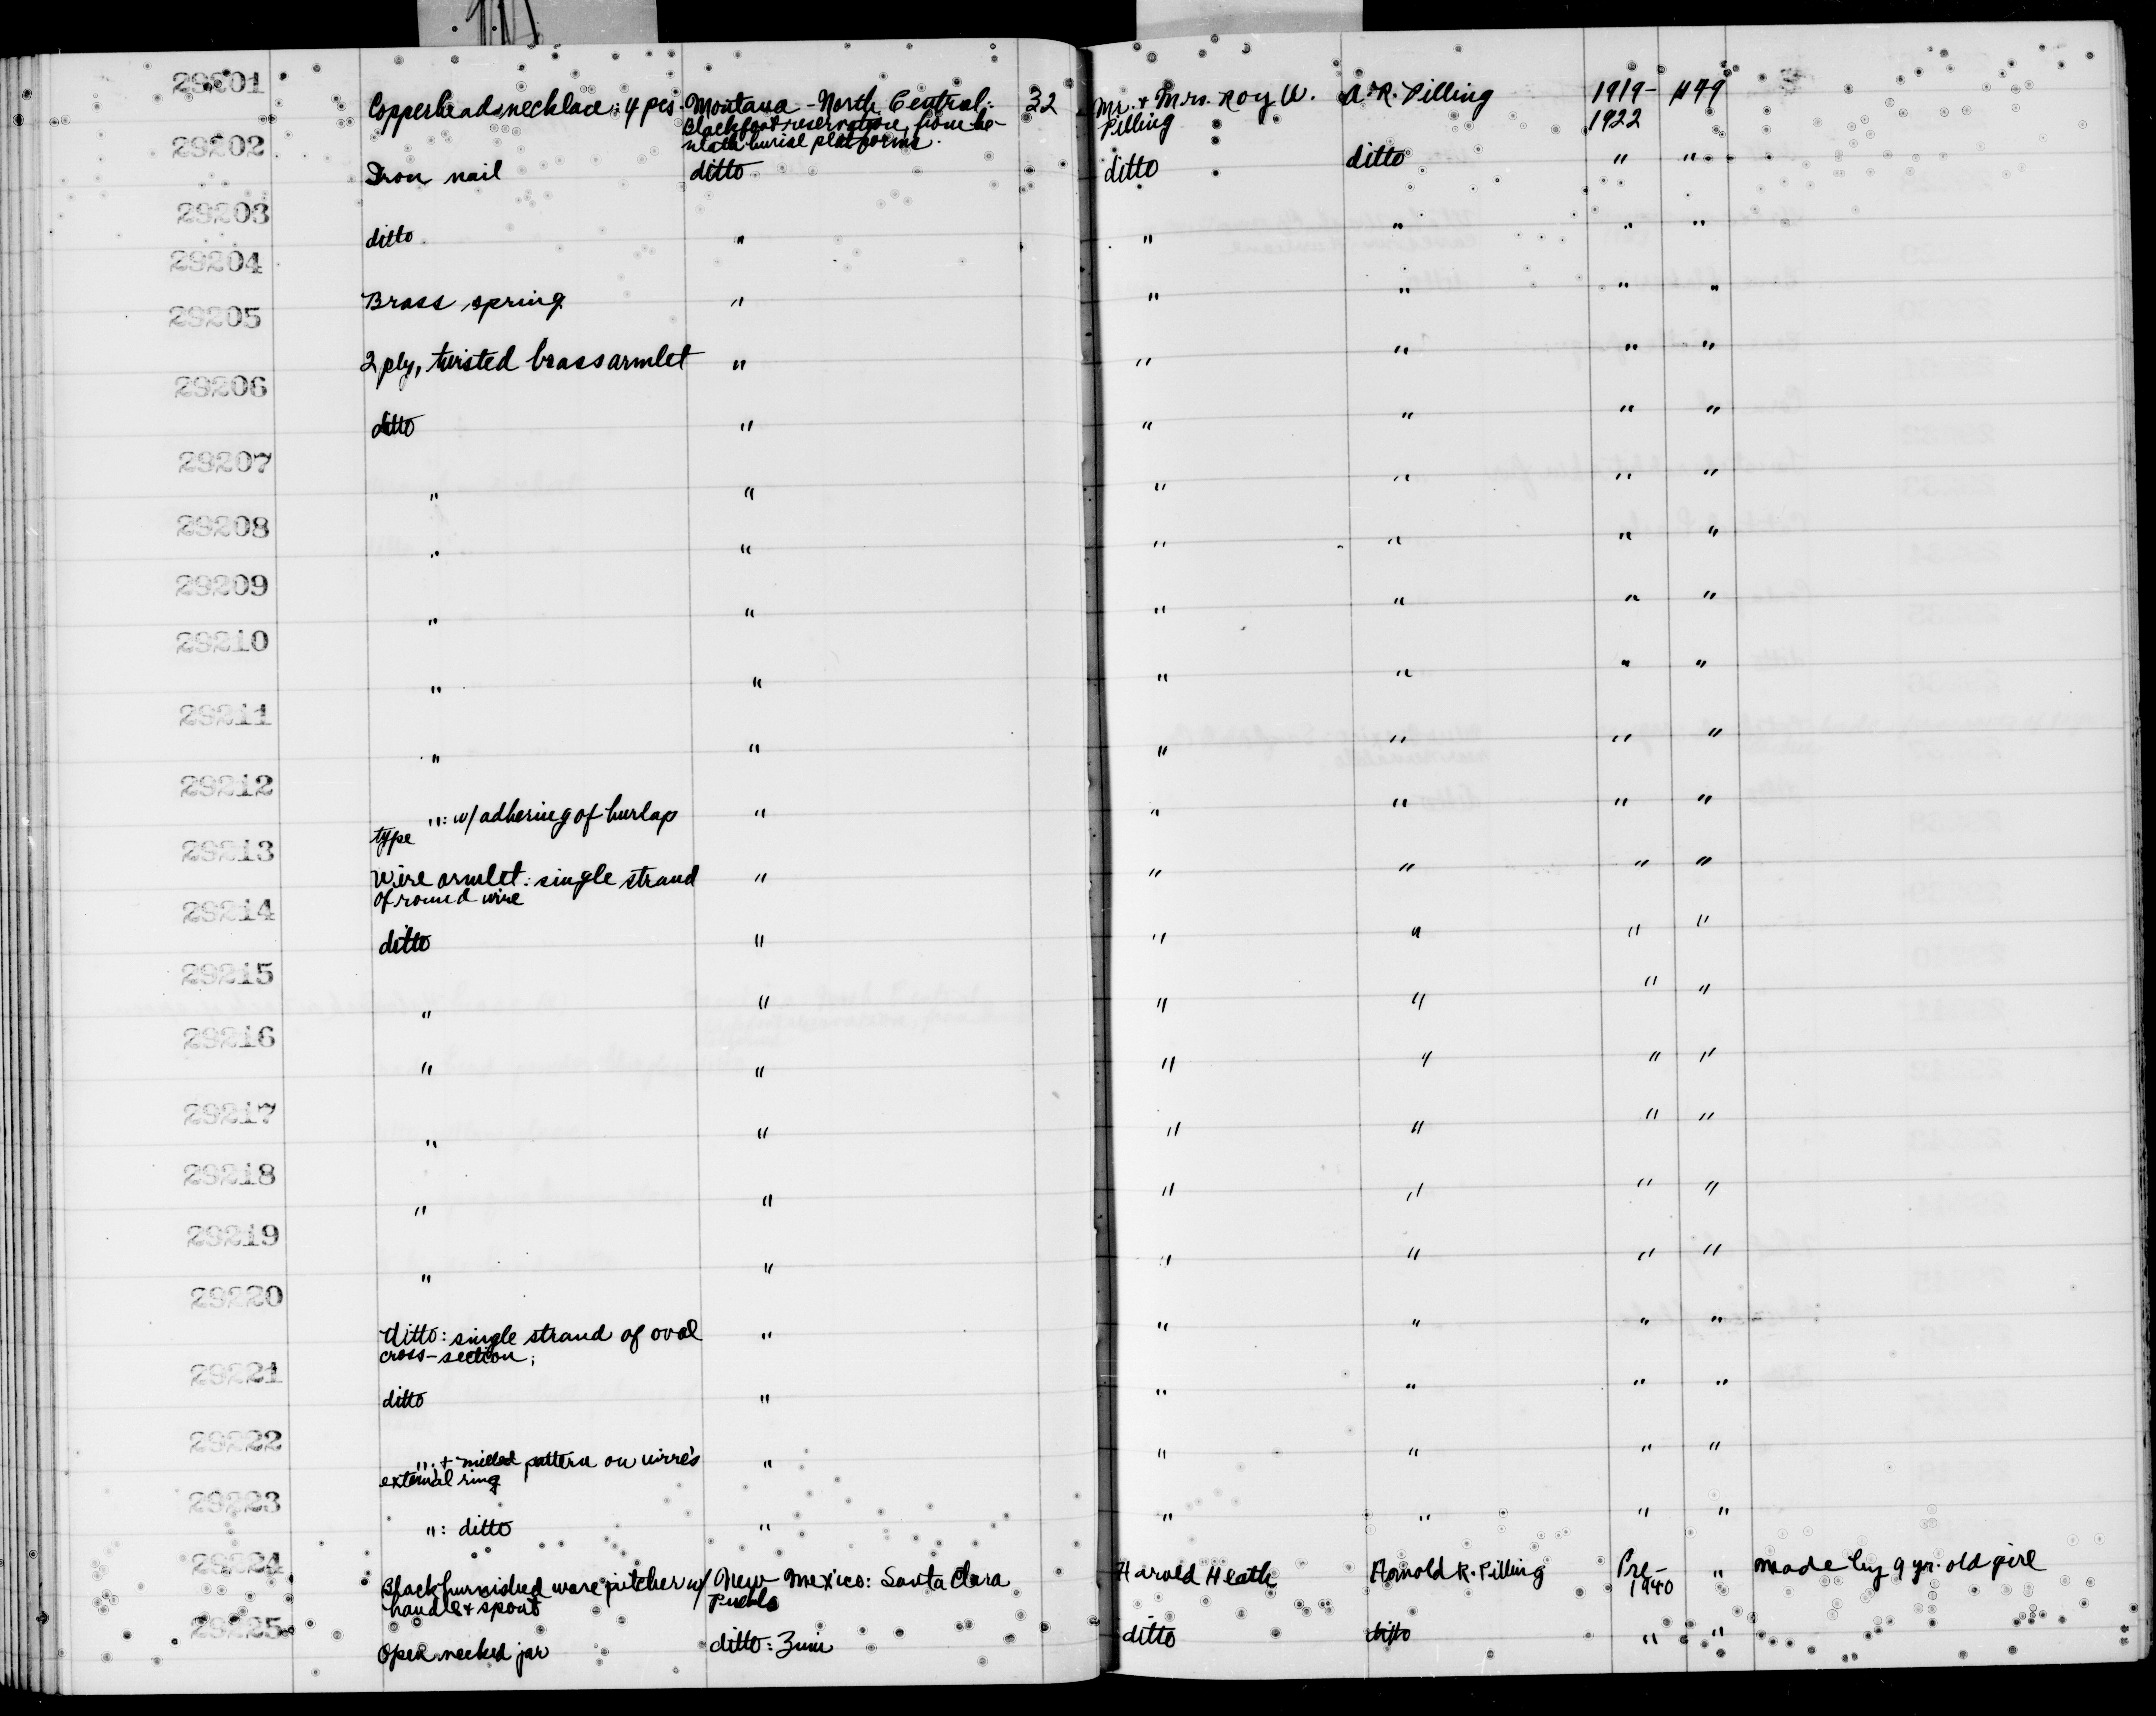 29201 Copper bead necklace: 4 pcs. Montana - North Central: 32 Mr. + Mrs. Roy W. A. R. Pilling 1919- 499
Blackfoot reservation, from be- Pilling 1922
neath burial platforms.
29202 Iron nail ditto ditto ditto " "
29203 ditto " " " " "
29204 Brass spring " " " " "
29205 2 ply, twisted brass armlet " " " " "
29206 ditto " " " " "
29207 " " " " " "
29208 " " " " " "
29209 " " " " " "
29210 " " " " " "
29211 " " " " " "
29212 ": w/ adhering of burlap " " " " "
type
29213 Wire armlet: single strand " " " " "
of round wire
29214 ditto " " " " "
29215 " " " " " "
29216 " " " " " "
29217 " " " " " "
29218 " " " " " "
29219 " " " " " "
29220 Ditto: single strand of oval " " " " "
cross-section;
29221 ditto " " " " "
29222 "; + milled pattern on wire's " " " " "
external ring
29223 ": ditto " " " " "
29224 Black burnished ware pitcher w/ New Mexico: Santa Clara Harold Heath Arnold R. Pilling Pre- " Made by 9 yr. old girl
handle + spout Pueblo 1940
29225 Open necked jar ditto: Zuni ditto ditto " "